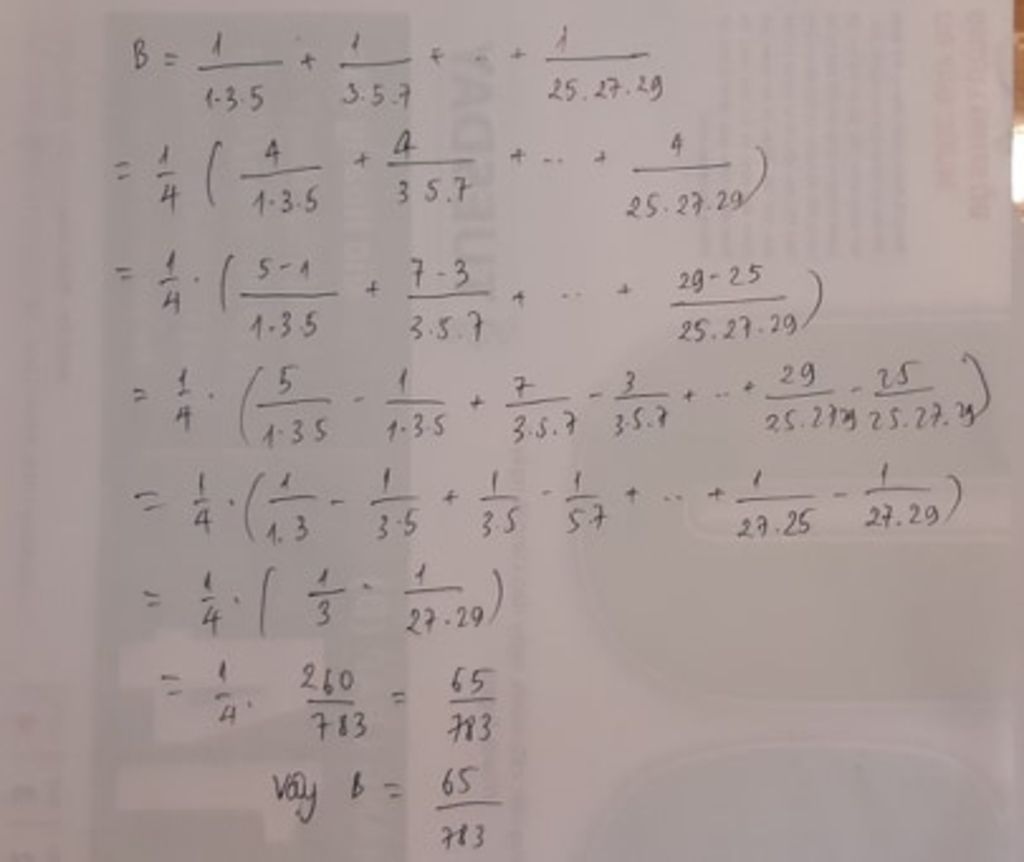 B = 1/1.3.5 + 1/3.5.7 + .. + 1/25.27.29
= 1/4 ( 4/1.3.5 + 4/3 5.7 + .. + 4/25.27.29 )
= 1/4 . ( 5-1/1.3 5 + 7-3/3.5.7 + .. + 29-25/25.27.29 )
= 1/4 . ( 5/1.3 5 - 1/1.3.5 + 7/3.5.7 - 3/3.5.7 + .. + 29/25.27.29 - 25/25.27.29 )
= 1/4 . ( 1/1.3 - 1/3.5 + 1/3.5 - 1/5.7 + .. + 1/27.25 - 1/27.29 )
= 1/4 . ( 1/3 - 1/27.29 )
= 1/4 . 260/783 = 65/783
Vậy B = 65/783